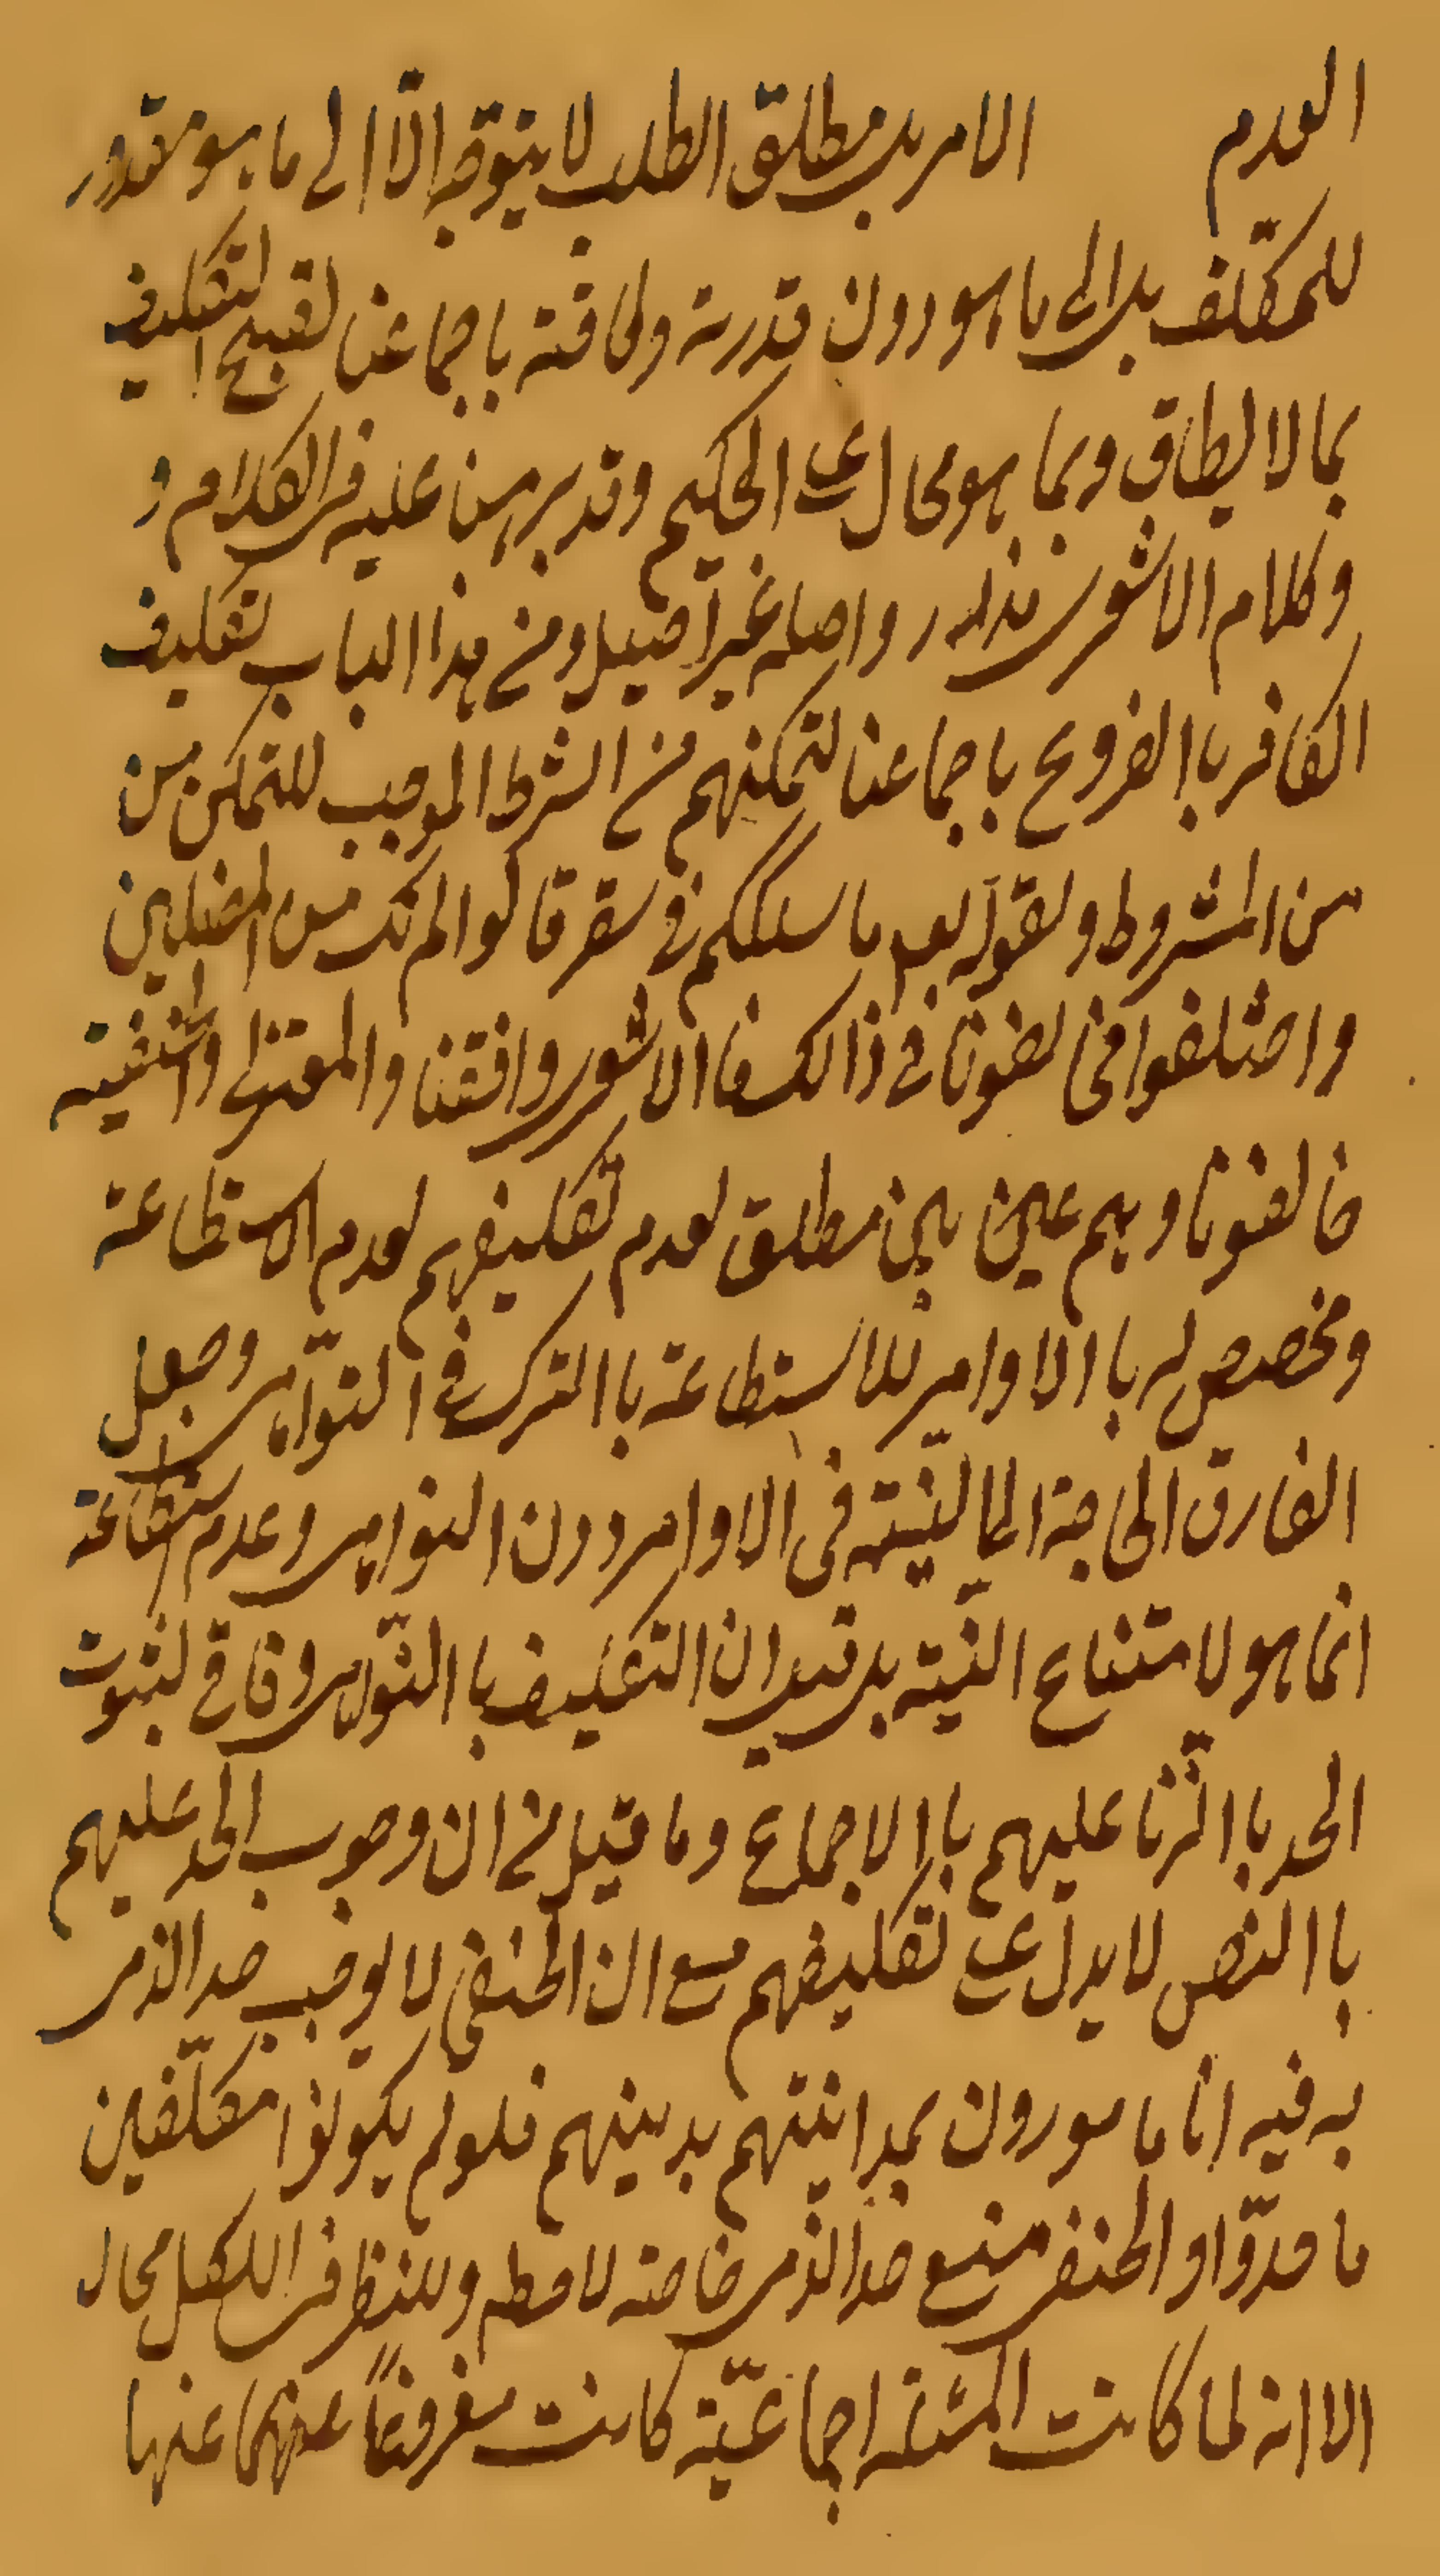 العدم الامر بل مطلق الطلب لا يتوجه الّا الى ما هو مقدور
للمكلّف بل الى ما هو دون قدرته وطاقته باجماعنا لقبح التكليف
بما لا يطاق وبما هو محال على الحكيم وقد برهن عليه فى الكلام و
وكلام الاشعرى هذر واصله غير اصيل ومن هذا الباب تكليف
الكافر باالفروع باجماعنا لتمكنهم من الشرط الموجب للتمكن من
من المشروط ولقوله تع ما سلككم فى سقر قالوا لم نك من المصلين
واختلفوا مخالفونا فى ذالك فاالاشعرى وافقنا والمعتزلى والحنفية
خالفونا وهم عين بين مطلق لعدم تكليفهم لعدم الاستطاعة
ومخصص له باالاوامر للاستطاعة باالترك فى النوّاهى وجعل
الفارق الحاجة الى النيّته فى الاوامر دون النواهى وعدم استطاعة
انما هو لامتناع النيّته بل قيل ان التكليف باالنّواهى وفاقى لثبوت
الحد باالزّنا عليهم باالاجماع وما قيل من ان وجوب الحد عليهم
باالنص لا يدل على تكليفهم مع ان الحنفى لا يوجب حد الذمى
به فيه انا مامورون بمداينتهم بدينهم فلو لم يكونوا مكلّفين
ما حدّوا والحنفى منع حد الذمى خاصته لا مطم وللنظر فى الكل مجال
الا انه لما كانت المسئلة اجماعيّته كانت مفروغاً عنهما عنها